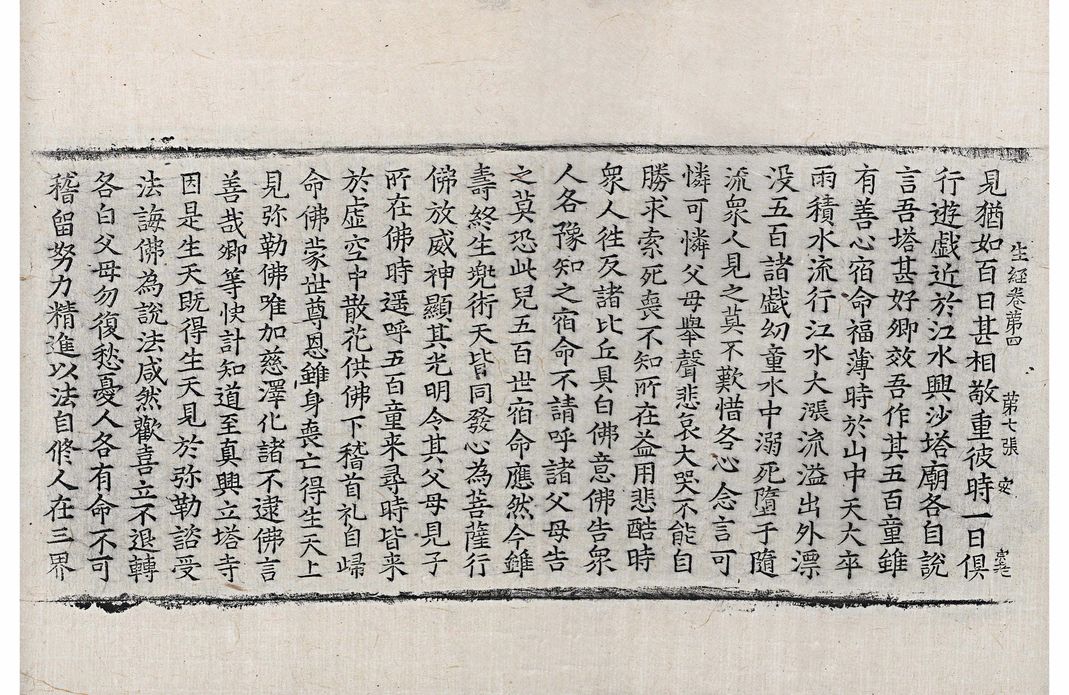 生經卷第四　第七張　安
見猶如百日甚相敬重彼時一日俱
行遊戱近於江水興沙塔廟各自說
言吾塔甚好卿效吾作其五百童雖
有善心宿命福薄時於山中天大卒
雨積水流行江水大漲流溢出外漂
没五百諸戱幼童水中溺死墮于隨
流衆人見之莫不歎惜各心念言可
憐可憐父母舉聲悲哀大哭不能自
勝求索死喪不知所在益用悲酷時
衆人徃反諸比丘具白佛意佛告衆
人各豫知之宿命不請呼諸父母告
之莫恐此兒五百世宿命應然今雖
壽終生兜術天皆同發心為菩薩行
佛放威神顯其光明令其父母見子
所在佛時遥呼五百童来尋時皆来
於虛空中散花供佛下稽首礼自歸
命佛蒙世尊恩雖身喪亡得生天上
見弥勒佛唯加慈澤化諸不逮佛言
善哉卿等快計知道至真興立塔寺
因是生天既得生天見於弥勒諮受
法誨佛為說法咸然歡喜立不退轉
各白父母勿復愁憂人各有命不可
稽留努力精進以法自脩人在三界